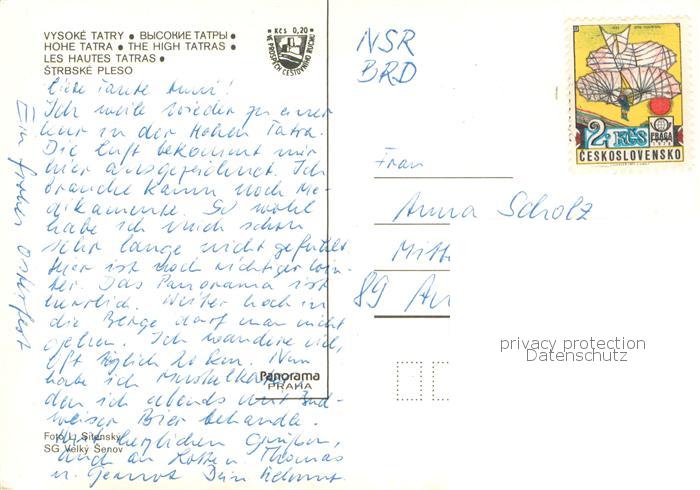 VYSOKÉ TATRY • ВЫСОКИЕ ТАТРЫ •
HOHE TATRA • THE HIGH TATRAS •
LES HAUTES TATRAS •
ŠTRBSKÉ PLESO
Kčs 0,20
VE PROSPĚCH CESTOVNÍHO RUCHU
Liebe Tante Anni!
Ich weile wieder zu einer
Kur in der Hohen Tatra.
Die Luft bekommt mir
hier ausgezeichnet. Ich
brauche kaum noch Me-
dikamente. So wohl
habe ich mich schon
sehr lange nicht gefühlt
Hier ist noch richtiger Win-
ter. Das Panorama ist
herrlich. Weiter hoch in
die Berge darf man nicht
gehen. Ich wandere viel,
oft täglich 20 km. Nun
habe ich Muskelkater,
den ich abends mit Bud-
weiser Bier behandle.
Mit herzlichen Grüßen,
auch an Thomas
u. Dein Helmut.
Ein frohes Osterfest
Panorama
PRAHA
Foto Lj. Sitenský
SG Velký Šenov
NSR
BRD
2 Kčs
PRAGA
ČESKOSLOVENSKO
Frau
Anna Scholz
Mitt
89 Au
privacy protection
Datenschutz